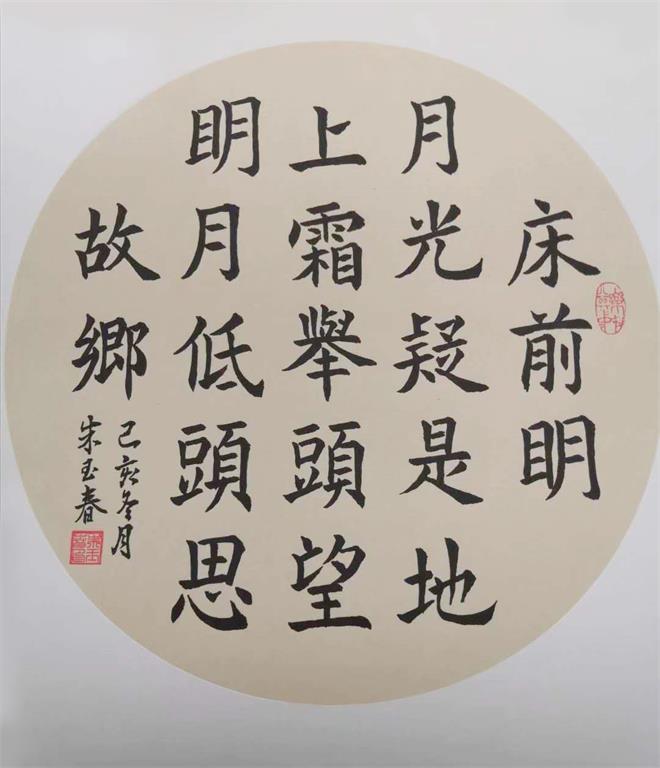 床前明
月光疑是地
上霜舉頭望
明月低頭思
故鄉
己亥冬月
朱玉春